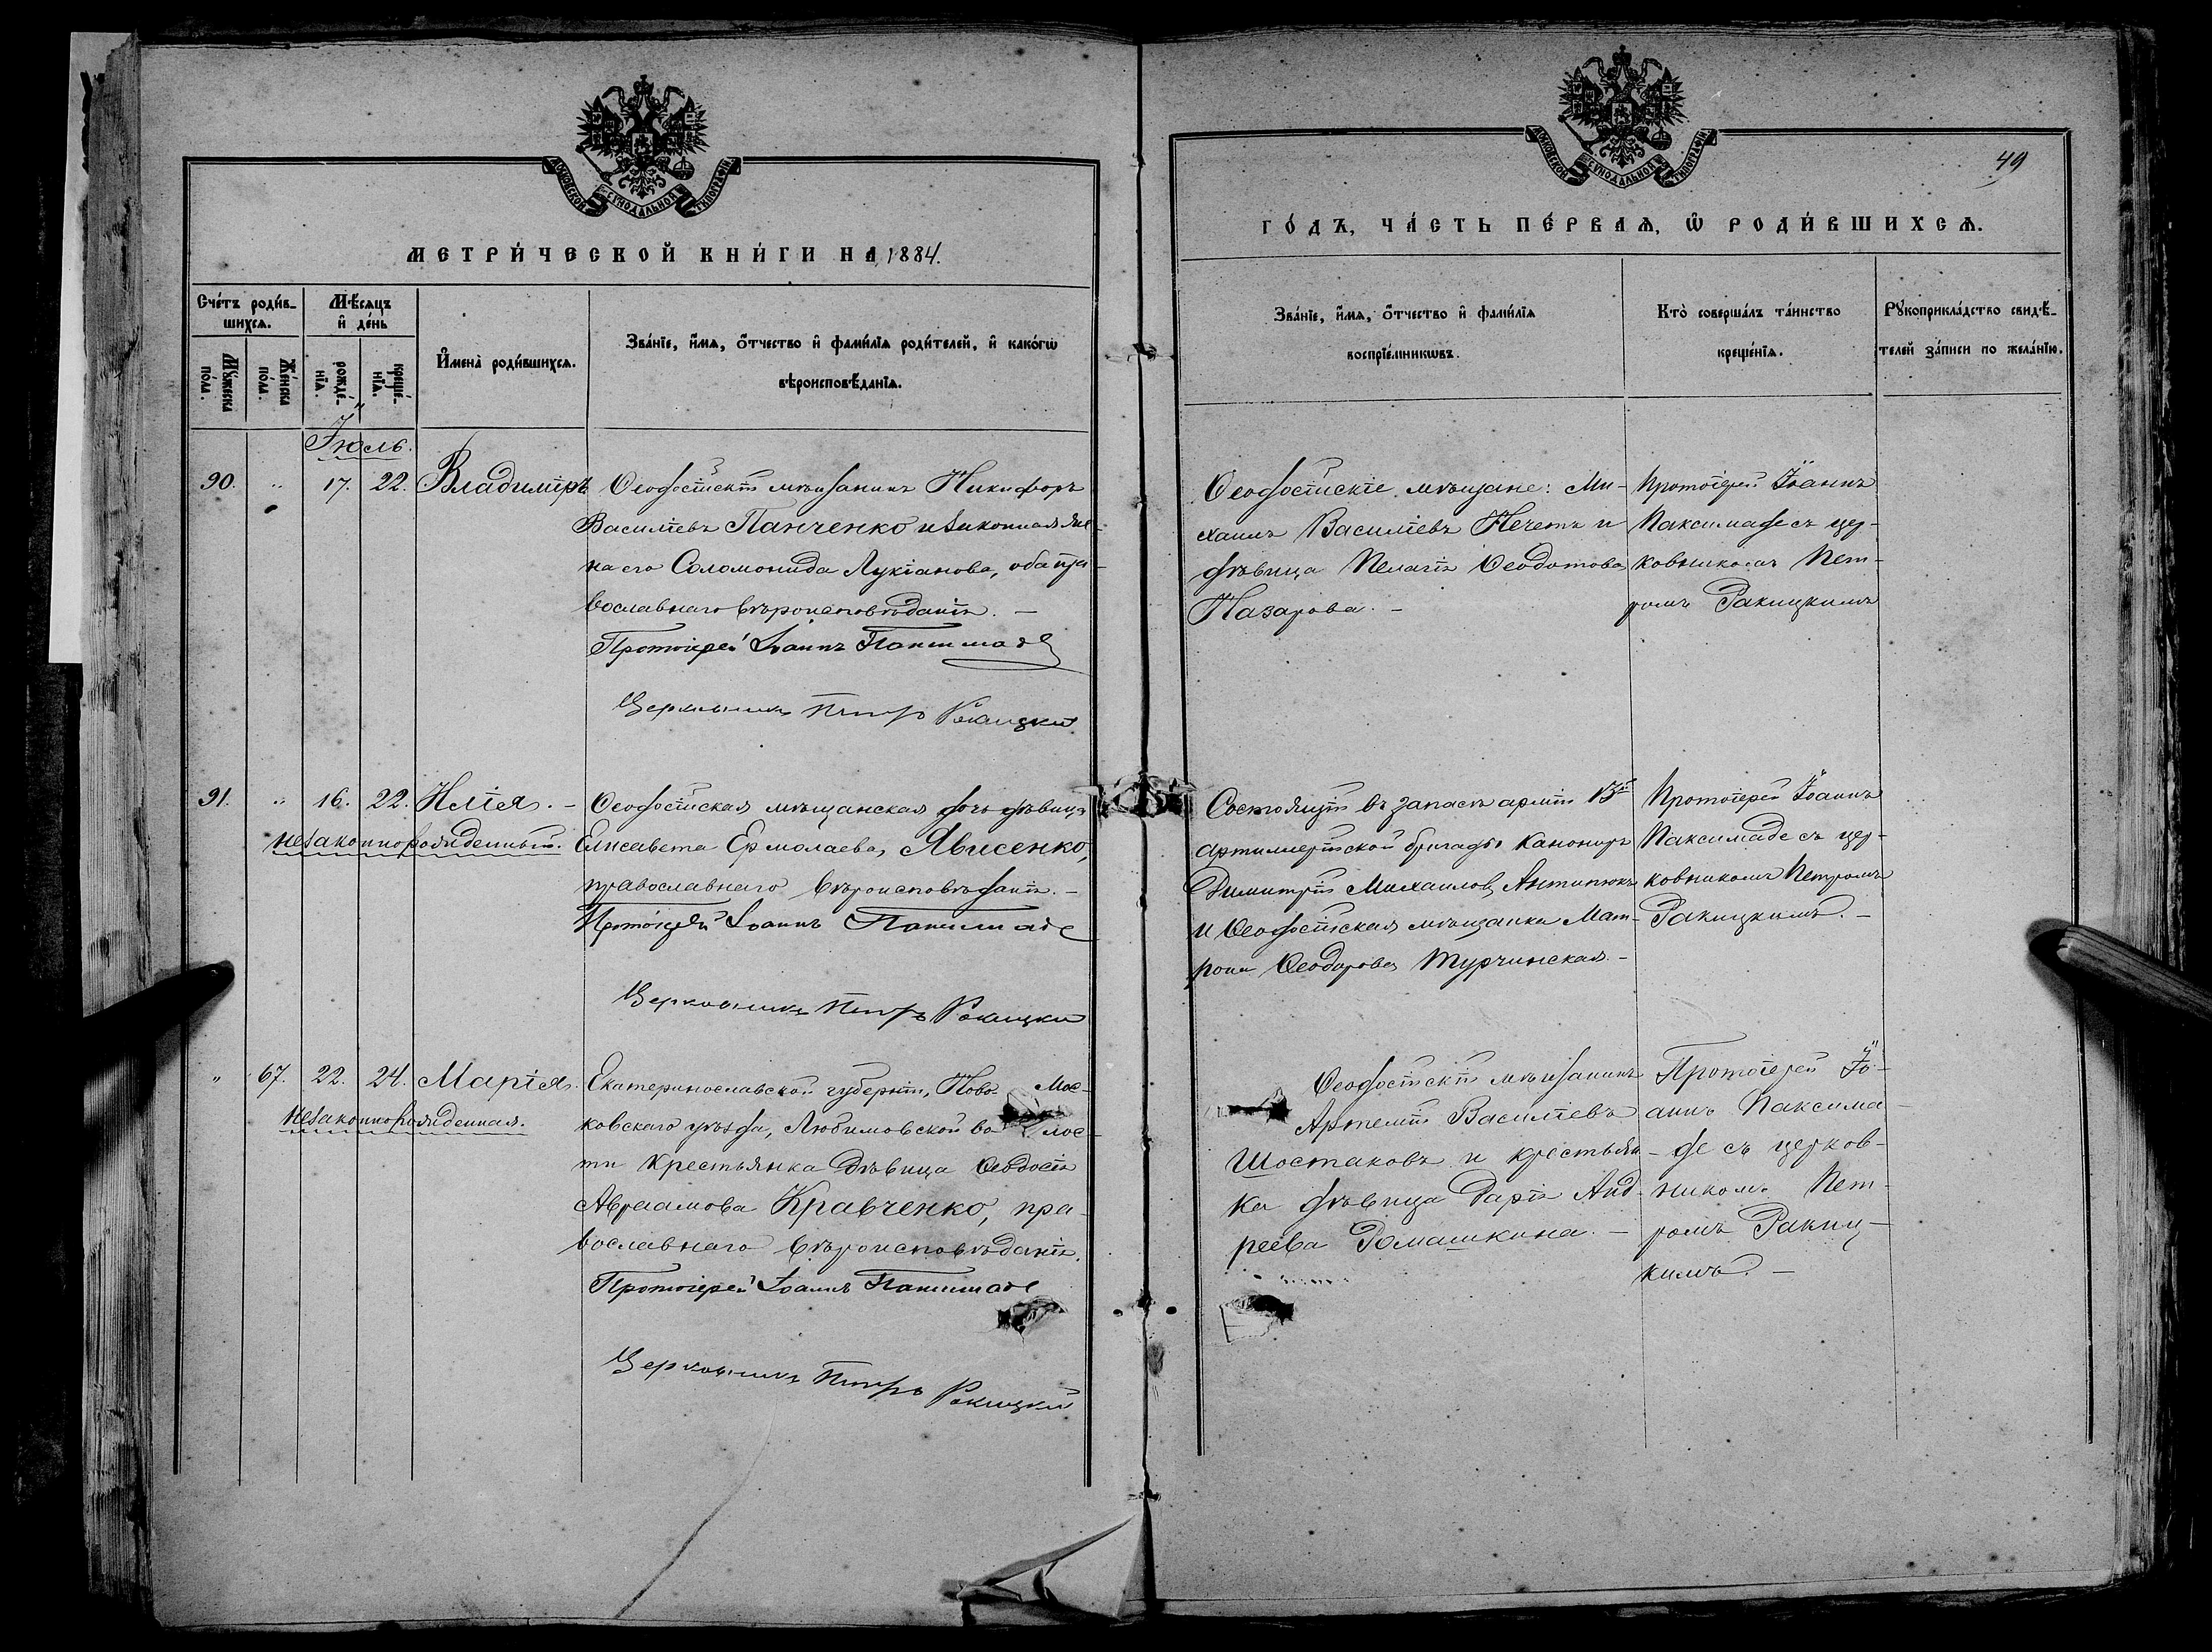 МОСКОВСКОЙ СѴНОДАЛЬНОЙ ТИПОГРАФІИ
МЕТРИ́ЧЕСКОЙ КНИ́ГИ НА 1884.
Сче́тъ роди́в-
шихсѧ.
Мѣ́сѧцъ
и҆ де́нь
Мꙋ́жеска
по́ла.
Же́нска
по́ла.
рожде́-
нїѧ.
креще́-
нїѧ.
И҆мена̀ роди́вшихсѧ.
Зва́нїе, и҆́мѧ, ѻ҆́тчество и҆ фами́лїѧ роди́телей, и҆ како́гѡ
вѣроисповѣ́данїѧ.
Іюль.
90. " 17. 22. Владиміръ
Ѳеодосійскій мѣщанинъ Никифоръ
Василіевъ Панченко и законная же-
на его Соломонида Лукіанова, оба пра-
вославнаго вѣроисповѣданія. —
Протоіерей Іоаннъ Паксимаде
Церковникъ Петръ Ракицкій
91. " 16. 22. Илія. —
незаконнорожденный.
Ѳеодосійская мѣщанская дочь дѣвица
Елисавета Ермолаева Явисенко,
православнаго вѣроисповѣданія. —
Протоіерей Іоаннъ Паксимаде
Церковникъ Петръ Ракицкій
" 67. 22. 24. Марія.
незаконнорожденная.
Екатеринославской губерніи, Ново- Мос-
ковскаго уѣзда, Любимовской во лос-
ти крестьянка дѣвица Ѳеодосія
Авраамова Кравченко, пра-
вославнаго вѣроисповѣданія.
Протоіерей Іоаннъ Паксимаде
Церковникъ Петръ Ракицкій
МОСКОВСКОЙ СѴНОДАЛЬНОЙ ТИПОГРАФІИ
49
ГО́ДЪ, ЧА́СТЬ ПЕ́РВАѦ, Ѽ РОДИ́ВШИХСѦ.
Зва́нїе, и҆́мѧ, ѻ҆́тчество и҆ фами́лїѧ
воспрїе́мникѡвъ.
Кто̀ соверша́лъ та́инство
креще́нїѧ.
Рꙋкоприкла́дство свидѣ́-
телей за́писи по жела́нїю.
Ѳеодосійскіе мѣщане: Ми-
хаилъ Василіевъ Нечетъ и
дѣвица Пелагія Ѳеодотова
Назарова. —
Протоіерей Іоаннъ
Паксимаде съ цер-
ковникомъ Пет-
ромъ Ракицкимъ
Состоящій въ запасѣ арміи 13й
артиллерійской бригады канониръ
Димитрій Михаиловъ Антипюкъ
и Ѳеодосійская мѣщанка Мат-
рона Ѳеодорова Турчинская. —
Протоіерей Іоаннъ
Паксимаде съ цер-
ковникомъ Петромъ
Ракицкимъ. —
Ѳеодосійскій мѣщанинъ
Артемій Василіевъ
Шостаковъ и крестьян-
ка дѣвица Дарія Анд-
реева Ромашкина. —
Протоіерей Іо-
аннъ Паксима-
де съ церков-
никомъ Пет-
ромъ Ракиц-
кимъ. —